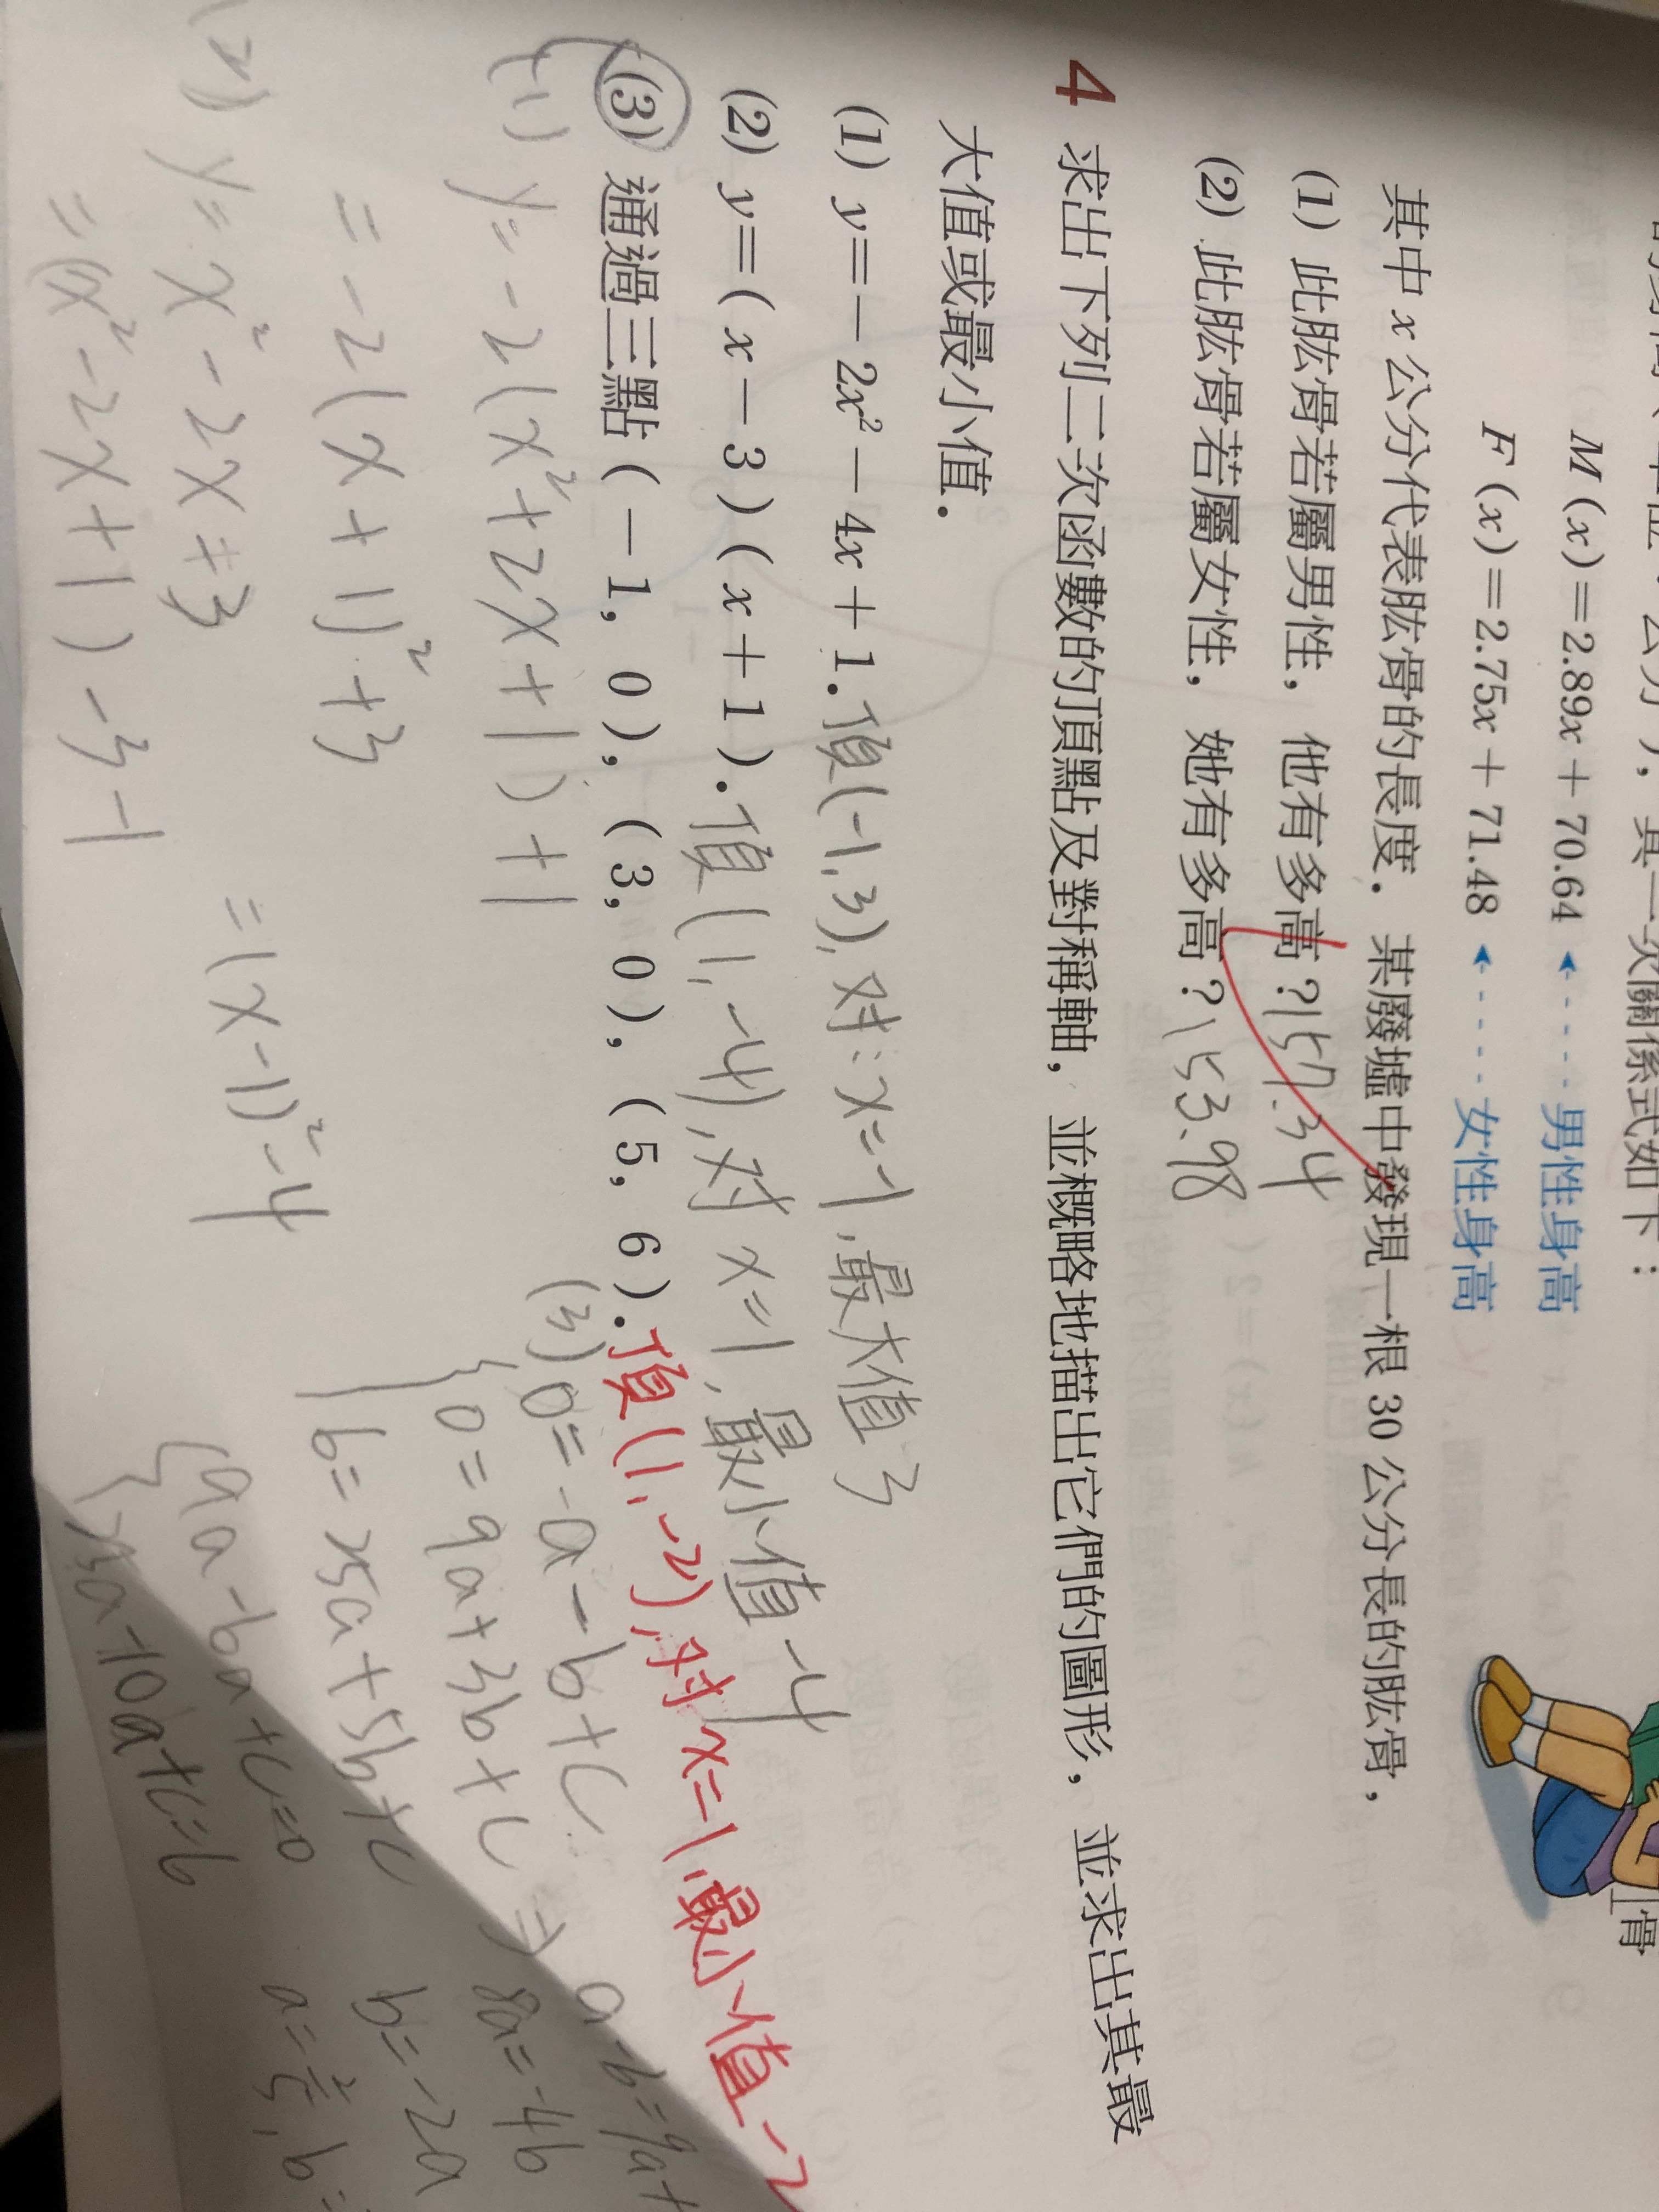 M(x)=2.89x+70.64 ◄---- 男性身高
F(x)=2.75x+71.48 ◄---- 女性身高
其中 x 公分代表肱骨的長度．某廢墟中發現一根 30 公分長的肱骨，
(1) 此肱骨若屬男性，他有多高？157.34
(2) 此肱骨若屬女性，她有多高？153.98
骨
4 求出下列二次函數的頂點及對稱軸，並概略地描出它們的圖形，並求出其最
大值或最小值．
(1) y=－2x²－4x＋1．頂(-1,3),对:x=-1,最大值3
(2) y=(x－3)(x＋1)．頂(1,-4),对 x=1,最小值-4
(3) 通過三點(－1, 0), (3, 0), (5, 6)．頂(1,-2),对x=1,最小值-2
(1) y=-2(x²+2x+1)+1
=-2(x+1)²+3
(2) y=x²-2x+3
=(x²-2x+1)-3-1
=(x-1)²-4
(3) 0=-a-b+c
0=9a+3b+c
6=25a+5b+c
8a=-4b
b=-2a